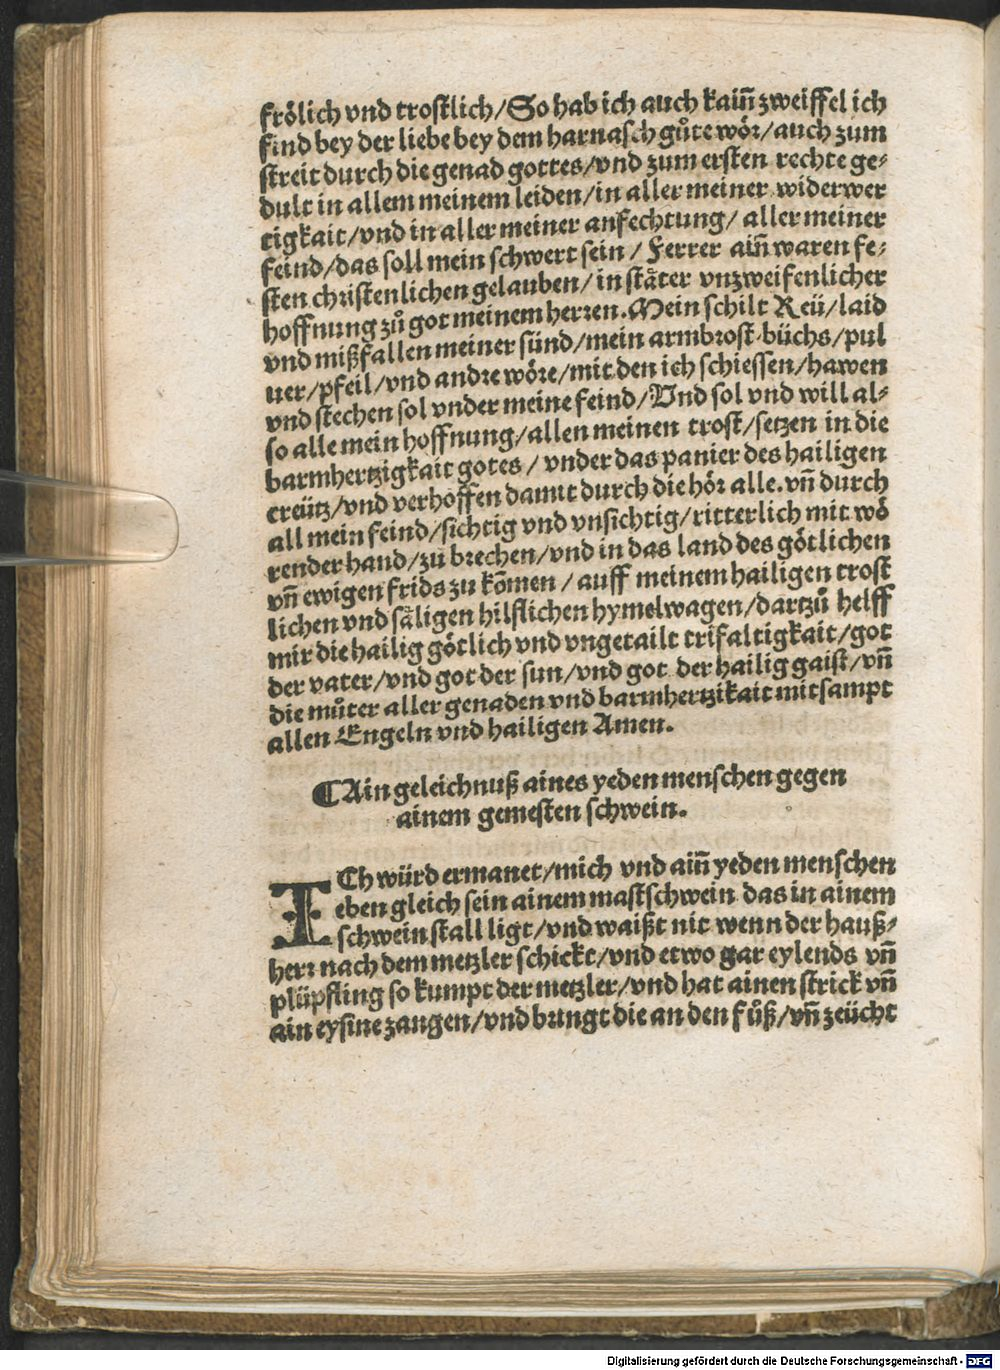 frölich vnd trostlich/So hab ich auch kaiñ zweiffel ich
find bey der liebe bey dem harnasch gůte wör/auch zum
streit durch die genad gottes/vnd zum ersten rechte ge⸗
dult in allem meinem leiden/in aller meiner widerwer
tigkait/vnd in aller meiner anfechtung/ aller meiner
feind/das soll mein schwert sein / Ferrer aiñ waren fe⸗
sten christenlichen gelauben/ in stäter vnzweifenlicher
hoffnung zů got meinem herren. Mein schilt Reü/laid
vnd mißfallen meiner sünd/mein armbrost büchs/pul
uer/pfeil/vnd andre wöre/mit den ich schiessen/hawen
vnd stechen sol vnder meine feind/Vnd sol vnd will al⸗
so alle mein hoffnung/allen meinen trost/setzen in die
barmhertzigkait gotes / vnder das panier des hailigen
creütz/vnd verhoffen damit durch die hör alle. vñ durch
all mein feind/sichtig vnd vnsichtig/ritterlich mit wö
render hand/zů brechen/vnd in das land des götlichen
vñ ewigen frids zu kõmen / auff meinem hailigen trost
lichen vnd säligen hilflichen hymelwagen/dartzů helff
mir die hailig götlich vnd vngetailt trifaltigkait/got
der vater/vnd got der sun/vnd got der hailig gaist/vñ
die můter aller genaden vnd barmhertzikait mitsampt
allen Engeln vnd hailigen Amen.
¶Ain geleichnuß aines yeden menschen gegen
ainem gemesten schwein.
ICh würd ermanet/mich vnd aiñ yeden menschen
eben gleich sein ainem mastschwein das in ainem
schweinstall ligt/vnd waißt nit wenn der hauß⸗
herr nach dem metzler schickt/vnd etwo gar eylends vñ
plüpfling so kumpt der metzler/vnd hat ainen strick vñ
ain eysine zangen/vnd bringt die an den fůß/vñ zeücht
Digitalisierung gefördert durch die Deutsche Forschungsgemeinschaft - DFG